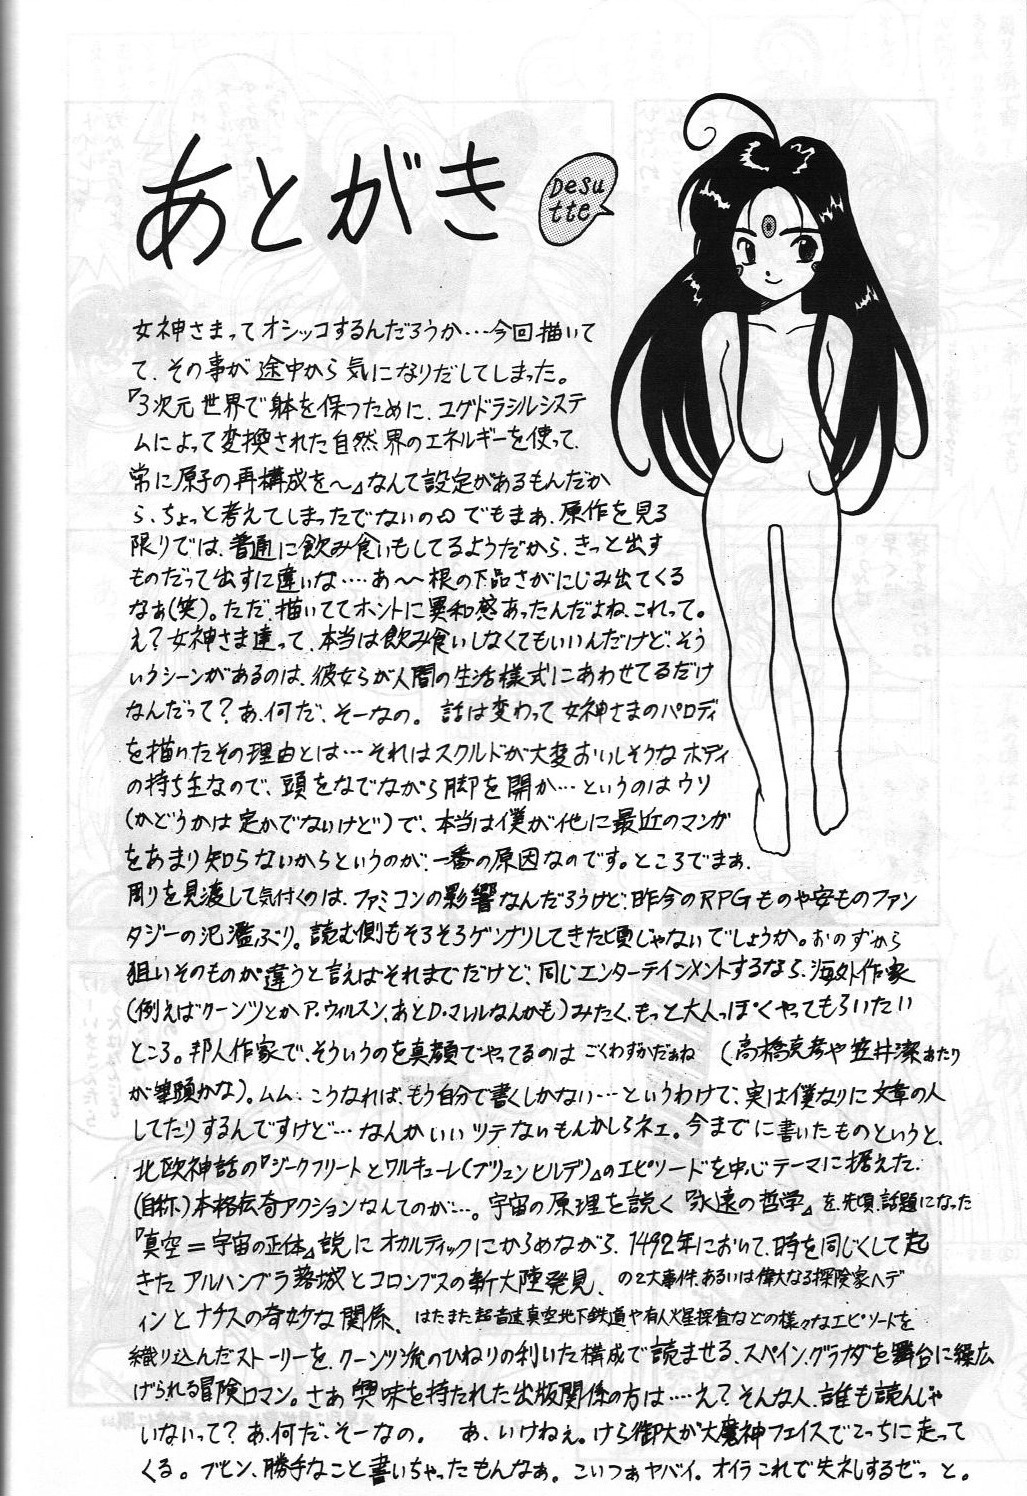 あとがき
Desu
tte
女神さまってオシッコするんだろうか…今回描いて
て、その事が途中から気になりだしてしまった。
『3次元世界で躰を保つために、ユグドラシルシステ
ムによって変換された自然界のエネルギーを使って、
常に原子の再構成を〜』なんて設定があるもんだか
ら、ちょっと考えてしまったでないの。でもまぁ、原作を見る
限りでは、普通に飲み食いもしてるようだから、きっと出す
ものだって出すに違いな‥‥あ〜〜根の下品さがにじみ出てくる
なぁ(笑)。ただ、描いててホントに異和感あったんだよね、これって。
え?女神さま達って、本当は飲み食いしなくてもいいんだけど、そう
いうシーンがあるのは、彼女らが人間の生活様式にあわせてるだけ
なんだって?あ、何だ、そーなの。 話は変わって女神さまのパロディ
を描いたその理由とは…それはスクルドが大変おいしそうなボディ
の持ち主なので、頭をなでながら脚を開か…というのはウソ
(かどうかは定かでないけど)で、本当は僕が他に最近のマンガ
をあまり知らないからというのが、一番の原因なのです。ところでまぁ、
周りを見渡して気付くのは、ファミコンの影響なんだろうけど、昨今のRPGものや安ものファン
タジーの氾濫ぶり。読む側もそろそろゲンナリしてきた頃じゃないでしょうか。おのずから
狙いそのものが違うと言えばそれまでだけど、同じエンターテインメントするなら、海外作家
(例えばクーンツとかP・ウィルスン、あとD・マレルなんかも)みたく、もっと大人っぽくやってもらいたい
ところ。邦人作家で、そういうのを真顔でやってるのはごくわずかだぁね (高橋克彦や笠井潔あたり
が筆頭かな)。ムム…こうなれば、もう自分で書くしかない…というわけで、実は僕なりに文章の人
してたりするんですけど…なんかいいツテないもんかしらネェ。今までに書いたものというと、
北欧神話の『ジークフリートとワルキューレ(ブリュンヒルデ)』のエピソードを中心テーマに据えた、
(自称)本格伝奇アクションなんてのが…。宇宙の原理を説く『永遠の哲学』を、先頃、話題になった
『真空=宇宙の正体』説にオカルティックにからめながら、1492年において、時を同じくして起
きたアルハンブラ落城とコロンブスの新大陸発見、の2大事件、あるいは偉大なる探険家ヘデ
ィンとナチスの奇妙な関係、はたまた超音速真空地下鉄道や有人火星探査などの様々なエピソードを
織り込んだストーリーを、クーンツ流のひねりの利いた構成で読ませる、スペイン、グラナダを舞台に繰広
げられる冒険ロマン。さぁ興味を持たれた出版関係の方は‥‥え?そんな人、誰も読んじゃ
いないって?あ、何だ、そーなの。 あ、いけねぇ。けら御大が大魔神フェイスでこっちに走って
くる。ブヒン、勝手なこと書いちゃったもんなぁ。こいつぁヤバイ。オイラこれで失礼するぜっと。